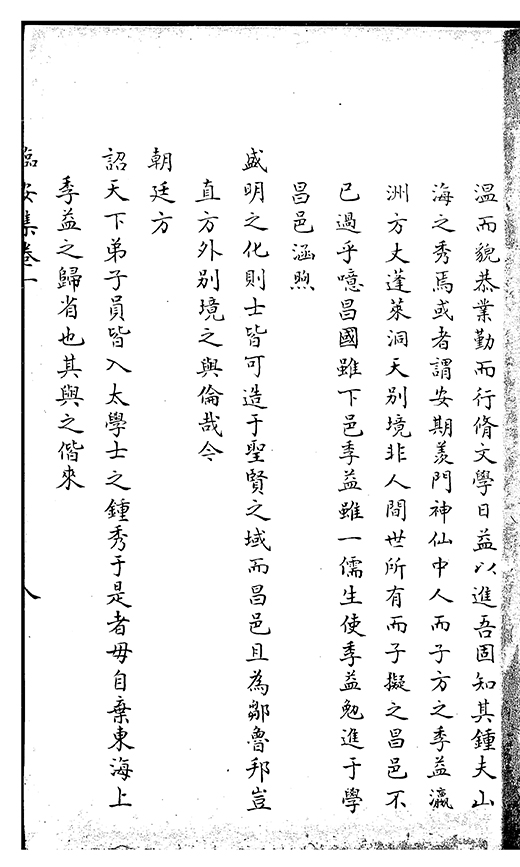 温而貌恭業勤而行脩文學日益以進吾固知其鍾夫山
海之秀焉或者謂安期羨門神仙中人而子方之季益瀛
洲方丈蓬萊洞天别境非人間世所有而子擬之昌邑不
已過乎噫昌國雖下邑季益雖一儒生使季益勉進于學
昌邑涵煦
盛明之化則士皆可造于聖賢之域而昌邑且為鄒魯邦豈
直方外别境之與倫哉今
朝廷方
詔天下弟子員皆入太學士之鍾秀于是者毋自棄東海上
季益之歸省也其與之偕來
臨安集卷一
八